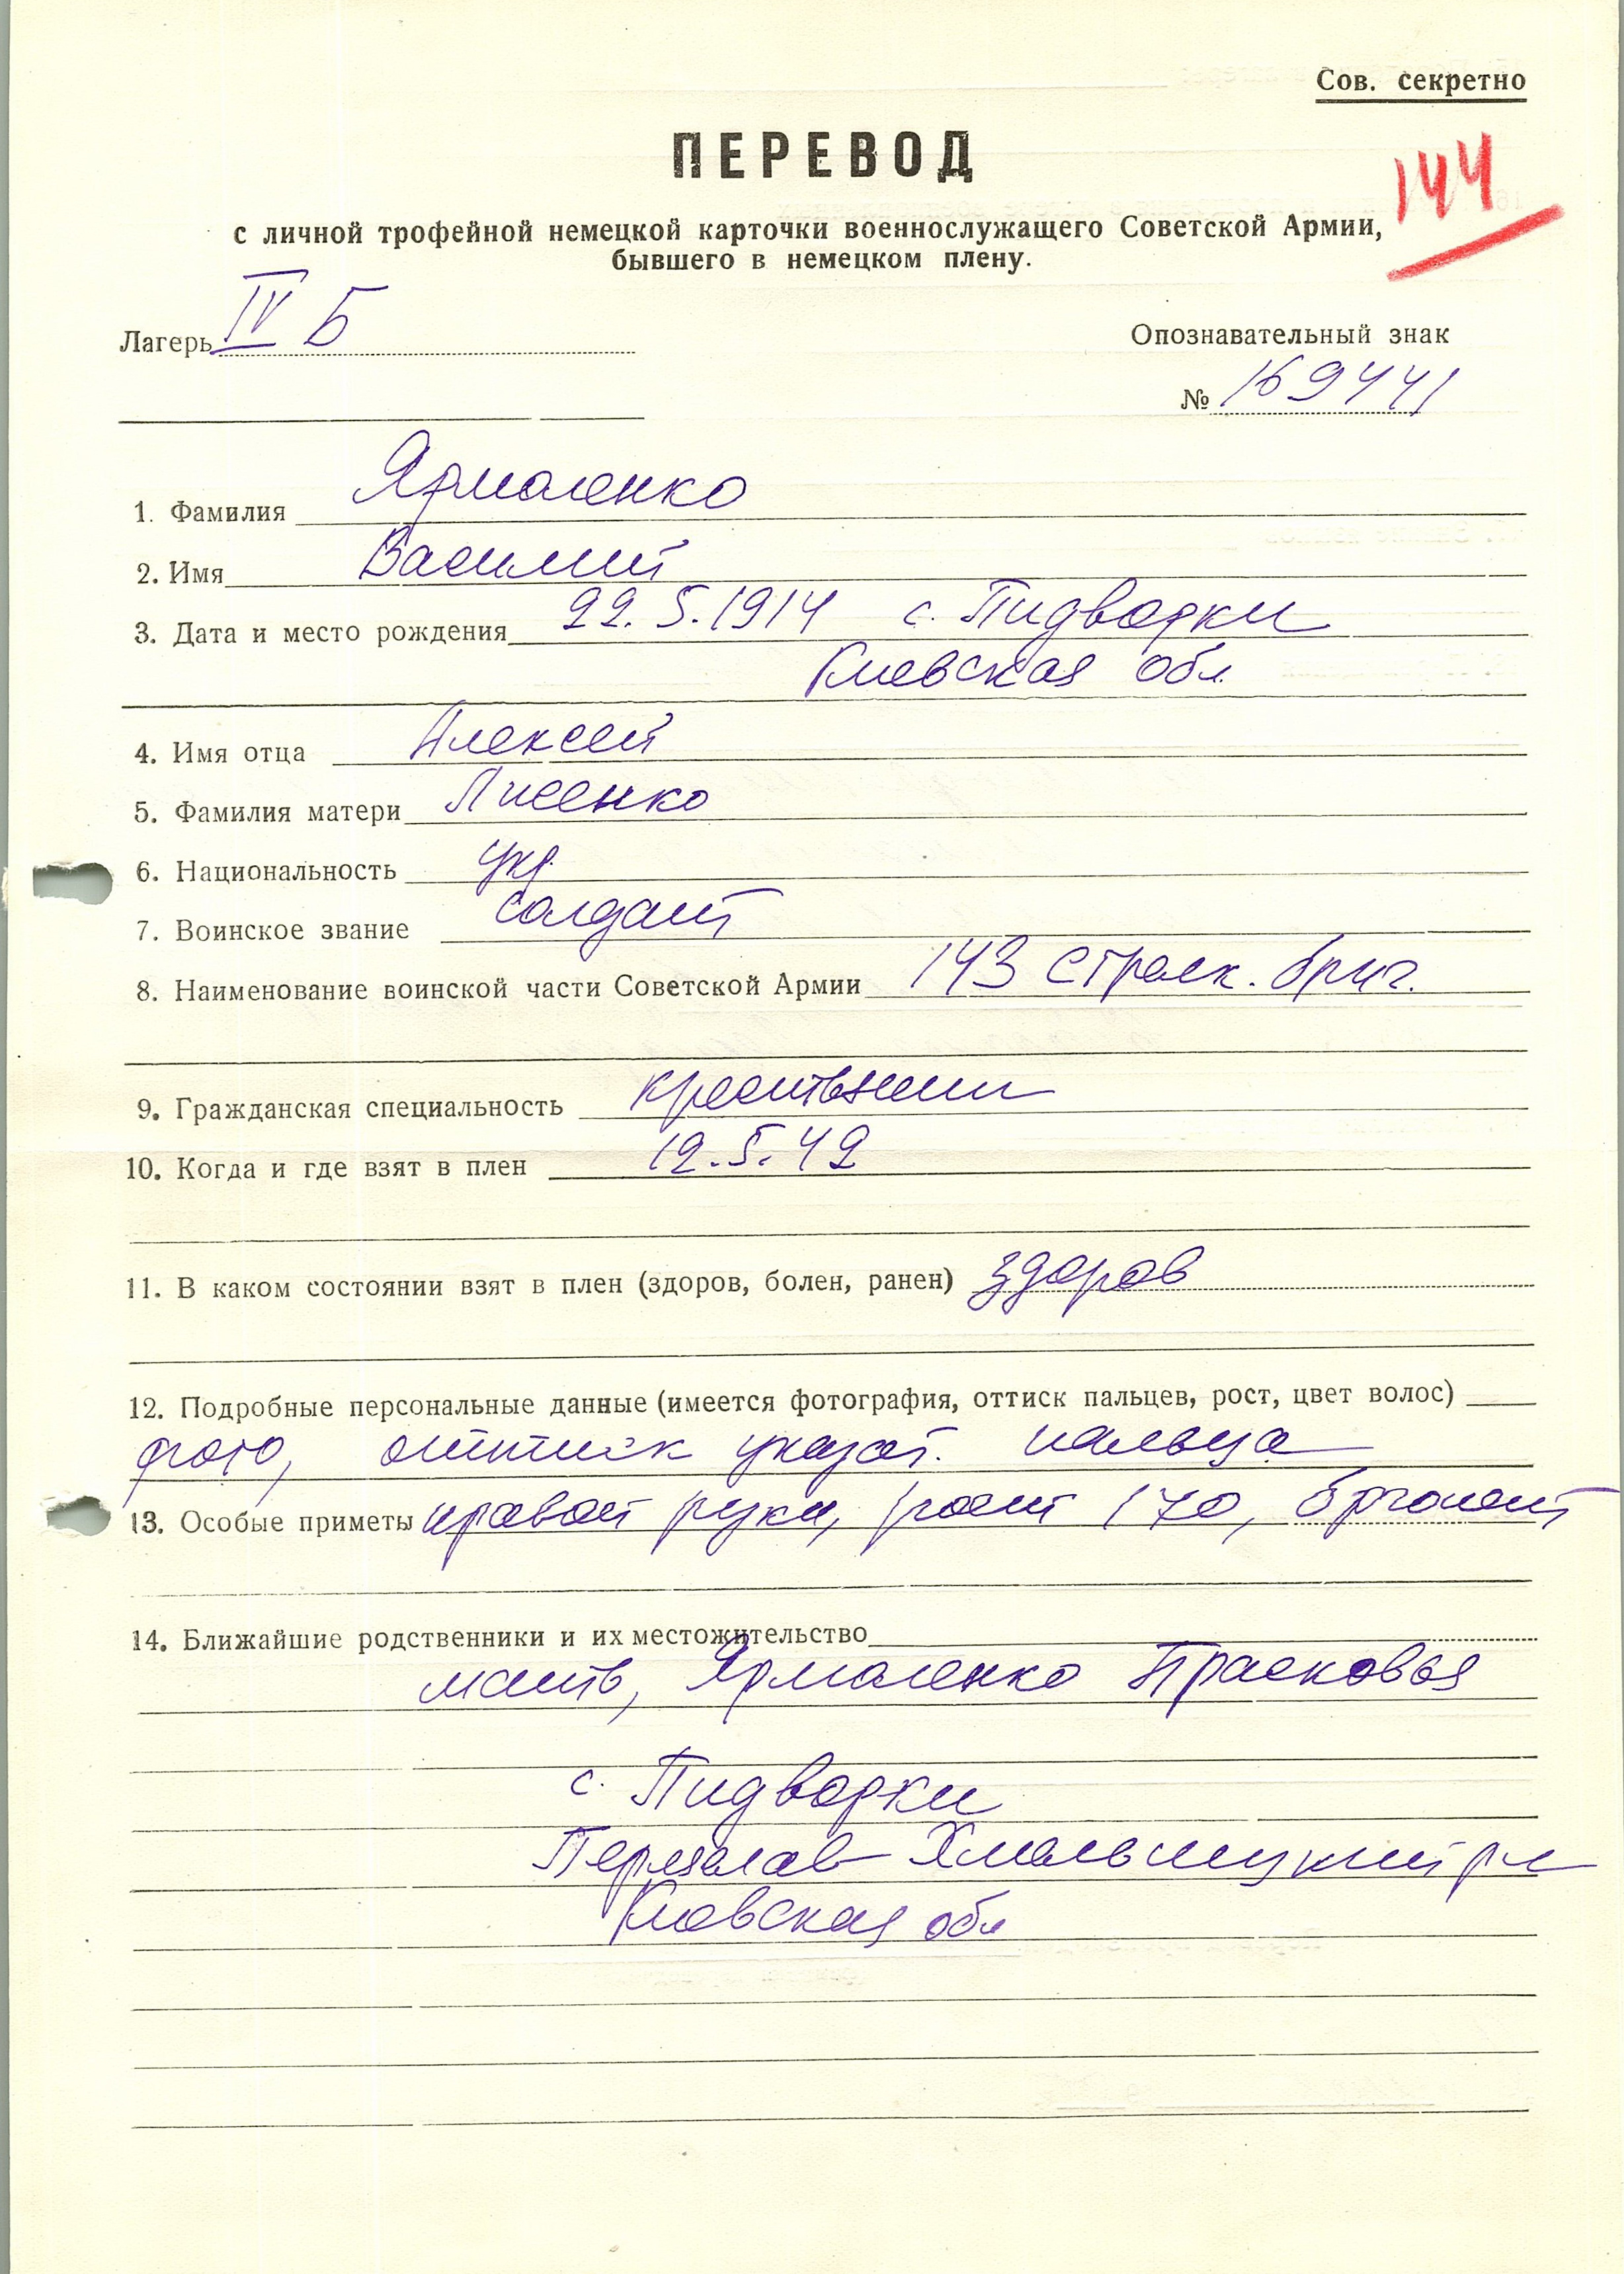 Сов. секретно
ПЕРЕВОД
144
с личной трофейной немецкой карточки военнослужащего Советской Армии,
бывшего в немецком плену.
Лагерь IV Б
Опознавательный знак
№ 169441
1. Фамилия Ярмоленко
2. Имя Василий
3. Дата и место рождения 22.5.1914 с. Пидворки
Киевская обл.
4. Имя отца Алексей
5. Фамилия матери Лисенко
6. Национальность укр.
7. Воинское звание солдат
8. Наименование воинской части Советской Армии 143 стрелк. бриг.
9. Гражданская специальность крестьянин
10. Когда и где взят в плен 12.5.42
11. В каком состоянии взят в плен (здоров, болен, ранен) здоров
12. Подробные персональные данные (имеется фотография, оттиск пальцев, рост, цвет волос)
фото, оттиск указат. пальца
13. Особые приметы правой руки, рост 170, брюнет
14. Ближайшие родственники и их местожительство
мать, Ярмоленко Прасковья
с. Пидворки
Хмельницкий р-н
Киевская обл